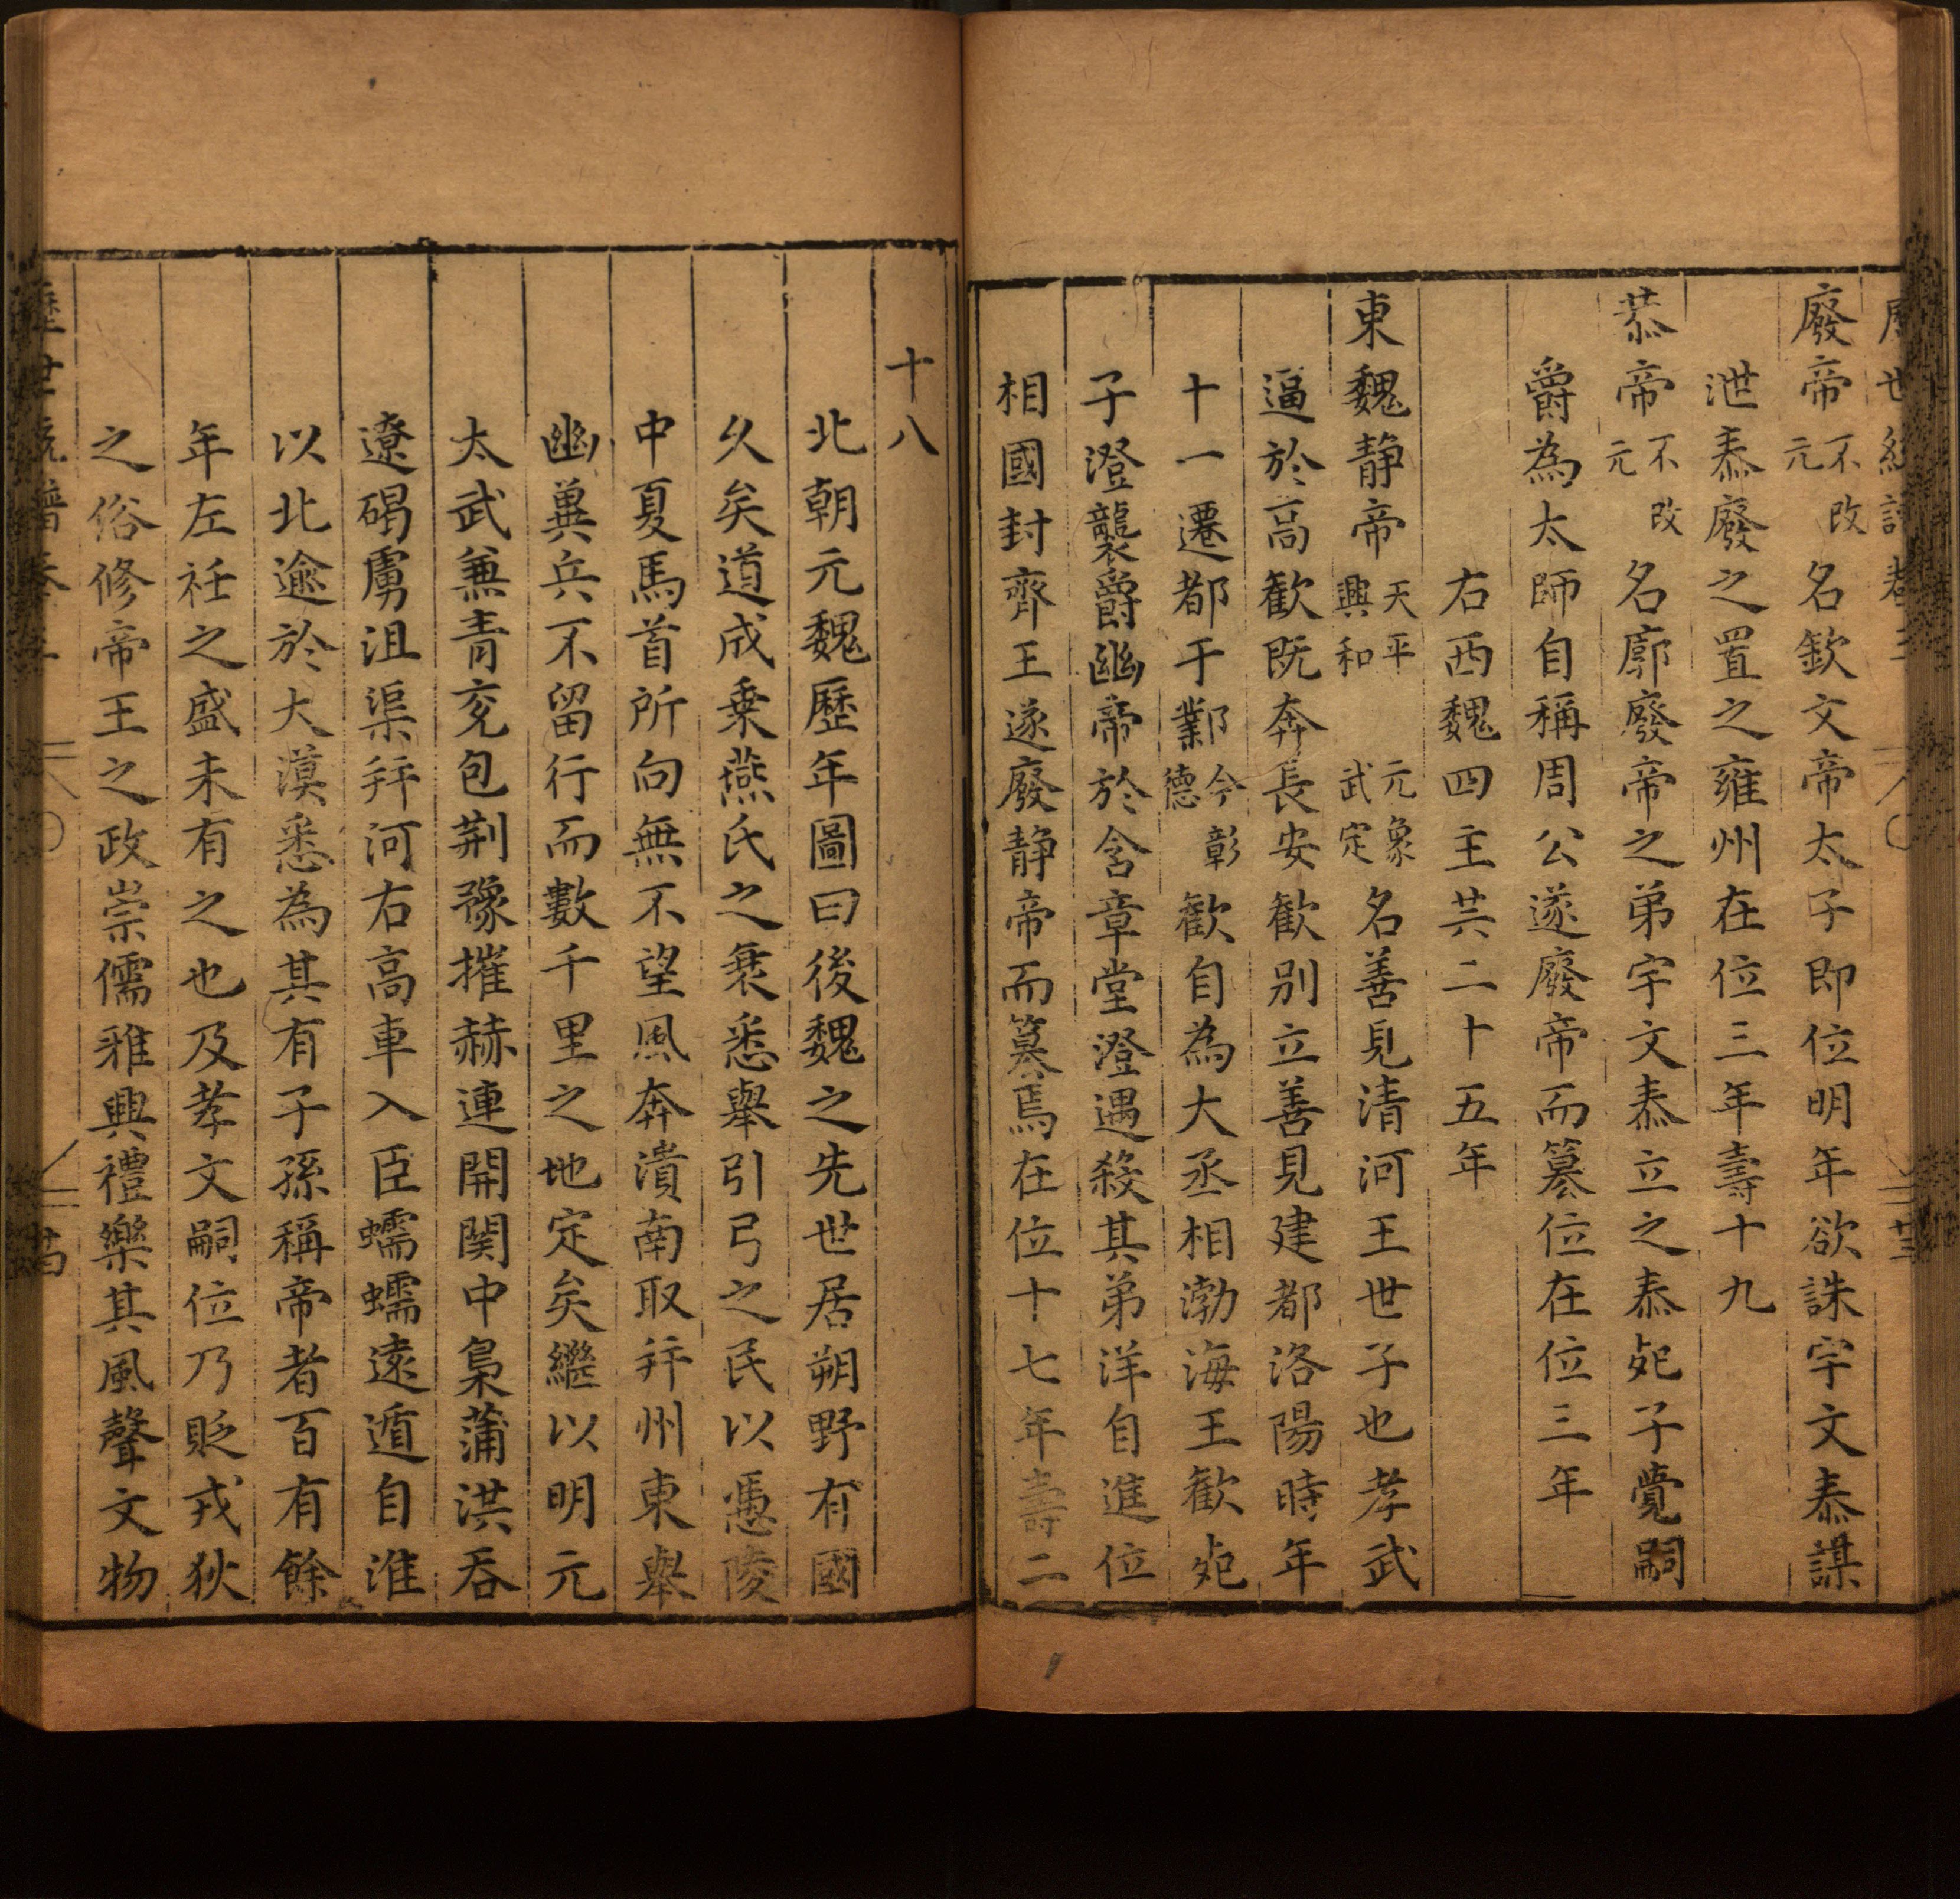 廢帝不改元名欽文帝太子即位明年欲誅宇文泰謀
泄泰廢之置之雍州在位三年壽十九
恭帝不改元名廓廢帝之弟宇文泰立之泰死子覺嗣
爵為太師自稱周公遂廢帝而篡位在位三年
右西魏四主共二十五年
東魏静帝天平興和元象武定名善見清河王世子也孝武
逼於高歡既奔長安歡別立善見建都洛陽時年
十一遷都于鄴今彰德歡自為大丞相渤海王歡死
子澄襲爵幽帝於含章堂澄遇殺其弟洋自進位
相國封齊王遂廢静帝而篡焉在位十七年壽二
十八
北朝元魏歷年圖曰後魏之先世居朔野有國
久矣道成乗燕氏之衰悉舉引弓之民以憑陵
中夏馬首所向無不望風奔潰南取并州東舉
幽兾兵不留行而數千里之地定矣繼以明元
太武兼青兖包荆豫摧赫連開関中梟蒲洪吞
遼碣虜沮渠并河右高車入臣蠕蠕遠遁自淮
以北逾於大漠悉為其有子孫稱帝者百有餘
年左衽之盛未有之也及孝文嗣位乃貶戎狄
之俗修帝王之政崇儒雅興禮樂其風聲文物